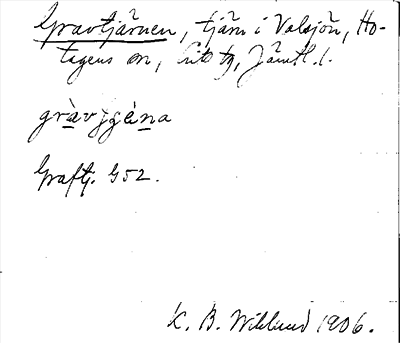 Gravtjärnen, tjärn i Valsjön, Ho-
tagens sn, Jämtl. l.
gràvjgèna
Graftj. G52.
K. B. Wiklund 1906.